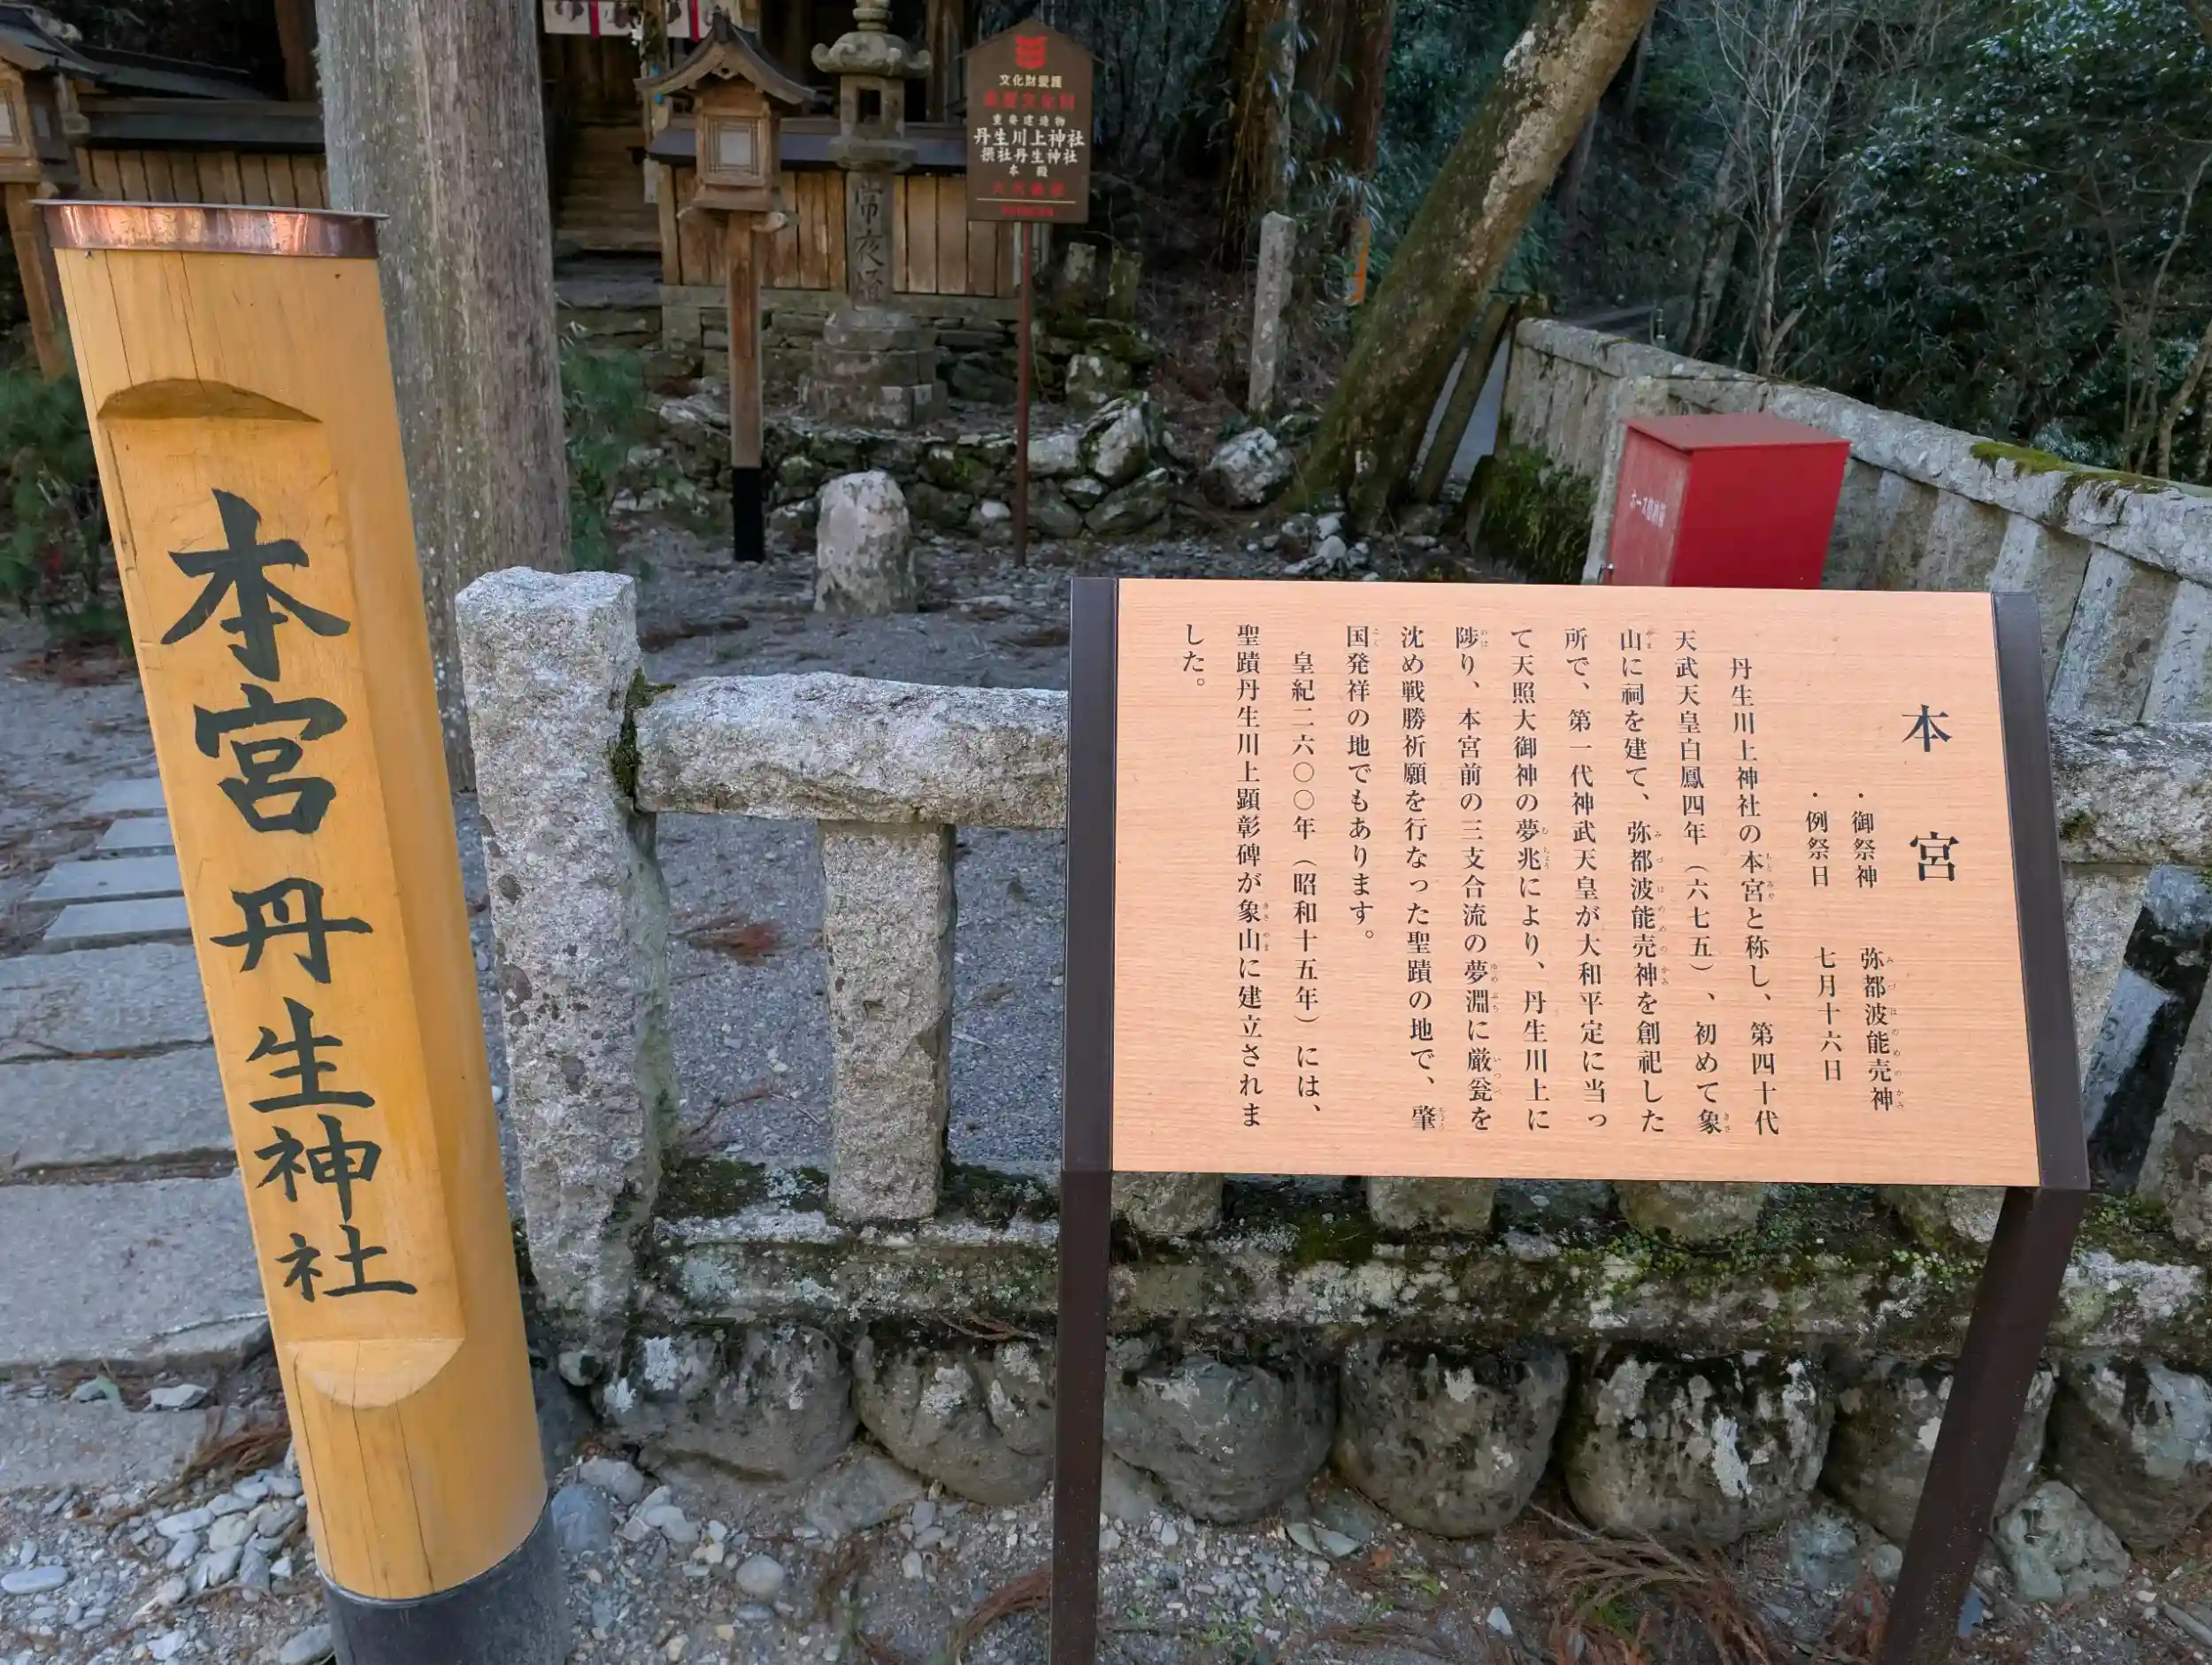 本宮 丹生神社
文化財愛護
重要文化財
重要建造物
丹生川上神社
摂社丹生神社
本殿
常夜燈
本宮
・御祭神 弥都波能売神
・例祭日 七月十六日
丹生川上神社の本宮と称し、第四十代
天武天皇白鳳四年（六七五）、初めて象
山に祠を建て、弥都波能売神を創祀した
所で、第一代神武天皇が大和平定に当っ
て天照大御神の夢兆により、丹生川上に
陟り、本宮前の三支合流の夢淵に厳瓮を
沈め戦勝祈願を行なった聖蹟の地で、肇
国発祥の地でもあります。
皇紀二六〇〇年（昭和十五年）には、
聖蹟丹生川上顕彰碑が象山に建立されま
した。